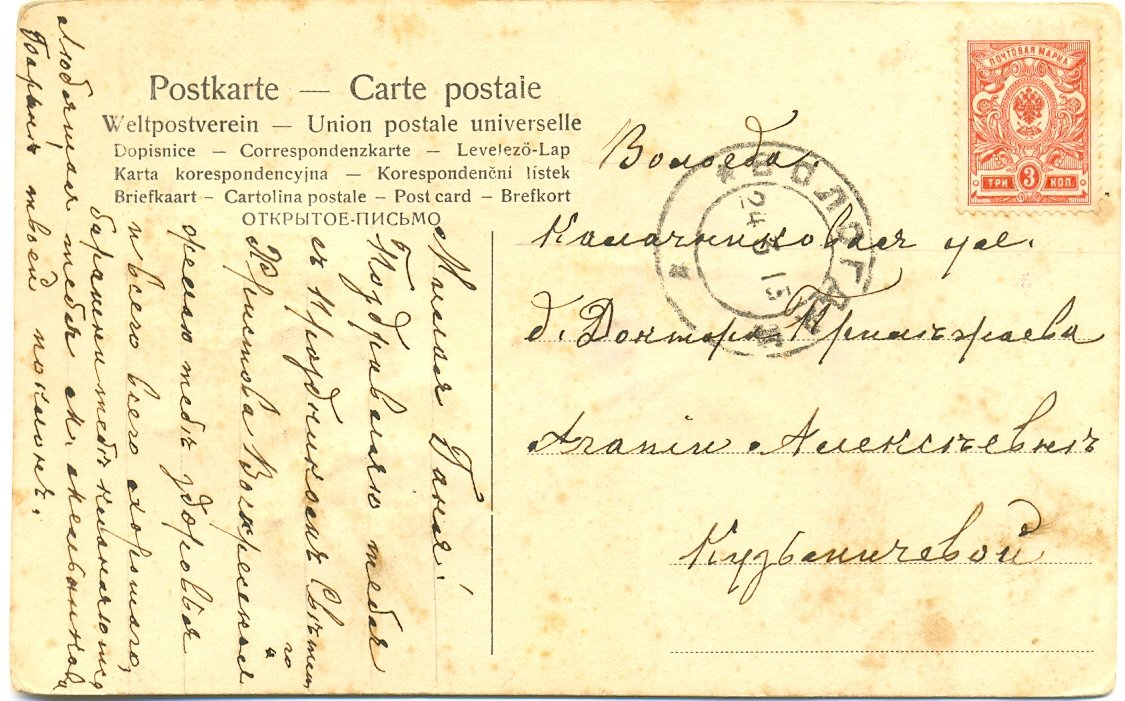 Postkarte — Carte postale
Weltpostverein — Union postale universelle
Dopisnice — Correspondenzkarte — Levelező-Lap
Karta korespondencyjna — Korespondenčni lístek
Briefkaart — Cartolina postale — Post card — Brefkort
ОТКРЫТОЕ-ПИСЬМО
ПОЧТОВАЯ МАРКА
ТРИ 3 КОП.
ВОЛОГДА
24 15
Вологда.
Калачниковская ул.
д. Доктора
Агапіи Алексѣевнѣ
Кузьмичевой
Милая Ганя!
Поздравляю тебя
съ Праздникомъ Свѣтлаго
Христова Воскресенья
и желаю тебѣ здоровья
и всего всего хорошаго,
барышни тебѣ кланяются
Любящая тебя М. Мельникова
Барынѣ твоей поклонъ.